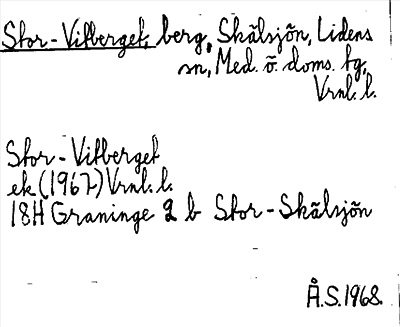 Stor-Vitberget, berg, Skälsjön, Lidens
sn, Med. ö. doms. tg,
Vrnl. l.
Stor-Vitberget
ek (1967) Vrnl. l.
18H Graninge 2 b Stor-Skälsjön
Å.S. 1968.